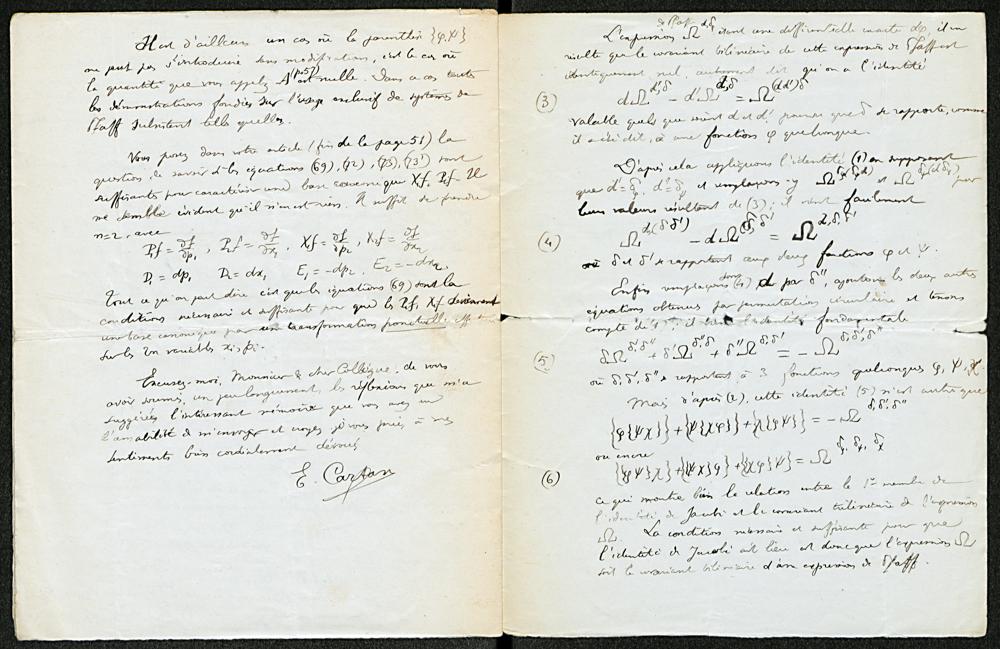 Il est d'ailleurs un cas où la parenthèse {φ,ψ}
ne peut pas s'introduire sans modifications, c'est le cas où
la quantité que vous appelez (p.57) est nulle. Dans ce cas toutes
les démonstrations fondées sur l'usage exclusif de systèmes de
Pfaff subsistent telles quelles.
Vous posez dans votre article (fin de la page 51) la
question de savoir si les équations (69), (72), (73), (73') sont
suffisantes pour caractériser une base canonique Xif, Pif. Il
me semble évident qu'il n'en est rien. Il suffit de prendre
n=2, avec
P1f = ∂f/∂p1, P2f = ∂f/∂x1, X1f = ∂f/∂p2, X2f = ∂f/∂x2
D1 = dp1, D2 = dx1, E1 = -dp2, E2 = -dx2
Tout ce qu'on peut dire c'est que les équations (69) sont la
conditions nécessaire et suffisante pour que les Pif, Xif deviennent
une base canonique par une transformation ponctuelle
sur les 2n variables xi, pi.
Excusez-moi, Monsieur & cher Collègue, de vous
avoir soumis, un peu longuement, les réflexions que m'a
suggérées l'intéressant mémoire que vous avez eu
l'amabilité de m'envoyer et croyez je vous prie, à mes
sentiments bien cordialement dévoués
E. Cartan
de Pfaff
L'expression Ω^{d,δ} étant une différentielle exacte dφ, il en
résulte que le covariant bilinéaire de cette expression de Pfaff est
identiquement nul, autrement dit qu'on a l'identité
(3) dΩ^{d',δ} - d'Ω^{d,δ} = Ω^{(dd')δ}
valable quels que soient d et d', pourvu que δ se rapporte, comme
il a été dit, à une fonction φ quelconque.
D'après cela appliquons l'identité (1) en supposant
que d'=δφ, d''=δψ et remplaçons-y et par
leurs valeurs résultant de (3); il vient facilement
(4) Ω^{d,(δδ')} - dΩ^{δ,δ'} = Ω^{d,δ,δ'}
où δ et δ' se rapportent aux deux fonctions φ et ψ.
Enfin remplaçons dans (4) d par δ'', ajoutons les deux autres
équations obtenues par permutation circulaire et tenons
compte de ; il vient l'identité fondamentale
(5) δΩ^{δ',δ''} + δ'Ω^{δ'',δ} + δ''Ω^{δ,δ'} = - Ω^{δ,δ',δ''}
où δ, δ', δ'' se rapportent à 3 fonctions quelconques φ, ψ, χ.
Mais d'après (2), cette identité (5) n'est autre que
{φ{ψχ}}+{ψ{χφ}}+{χ{φψ}} = -Ω^{δ,δ',δ''}
ou encore
(6) {{φψ}χ}+{{ψχ}φ}+{{χφ}ψ} = Ω^{δφ,δψ,δχ}
ce qui montre bien la relation entre le 1er membre de
l'identité de Jacobi et le covariant trilinéaire de l'expression
Ω. La condition nécessaire et suffisante pour que
l'identité de Jacobi ait lieu est donc que l'expression Ω
soit le covariant bilinéaire d'une expression de Pfaff.